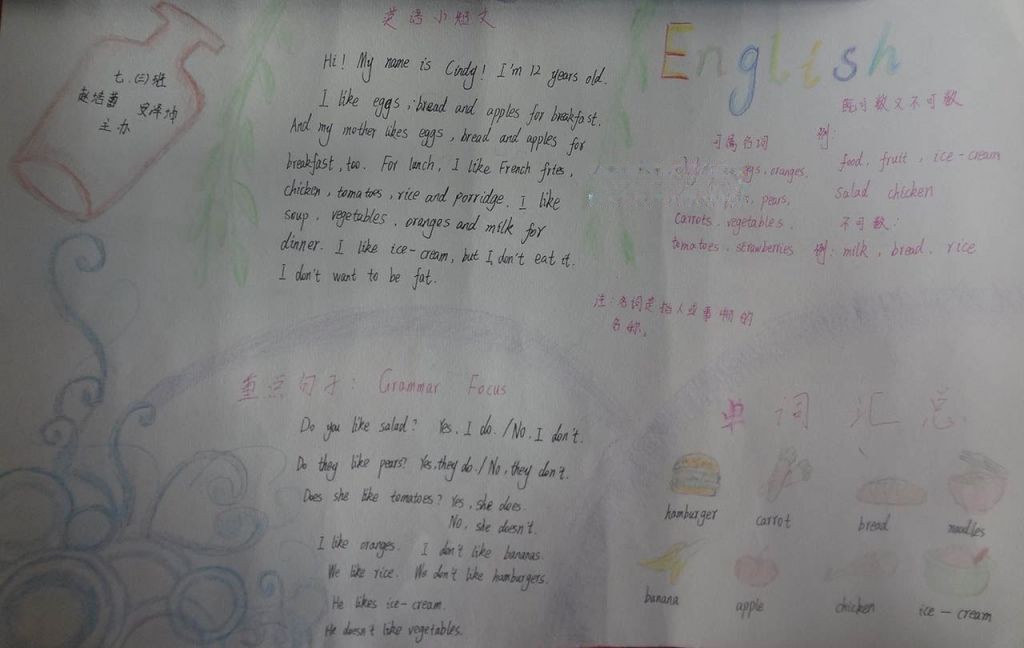 七.(三)班
主办
英语小短文
Hi! My name is Cindy! I'm 12 years old.
I like eggs, bread and apples for breakfast.
And my mother likes eggs, bread and apples for
breakfast, too. For lunch, I like French fries,
chicken, tomatoes, rice and porridge. I like
soup, vegetables, oranges and milk for
dinner. I like ice-cream, but I don't eat it.
I don't want to be fat.
English
可属名词
oranges.
pears,
carrots, vegetables.
tomatoes, strawberries
既可数又不可数
例:
food, fruit, ice-cream
salad chicken
不可数:
例: milk, bread, rice
注:名词是指人或事物的
名称。
重点句子: Grammar Focus
Do you like salad? Yes, I do. /No, I don't.
Do they like pears? Yes, they do. / No, they don't.
Does she like tomatoes? Yes, she does.
No, she doesn't.
I like oranges. I don't like bananas.
We like rice. We don't like hamburgers.
He likes ice-cream.
He doesn't like vegetables.
单词汇总
hamburger carrot bread noodles
banana apple chicken ice-cream